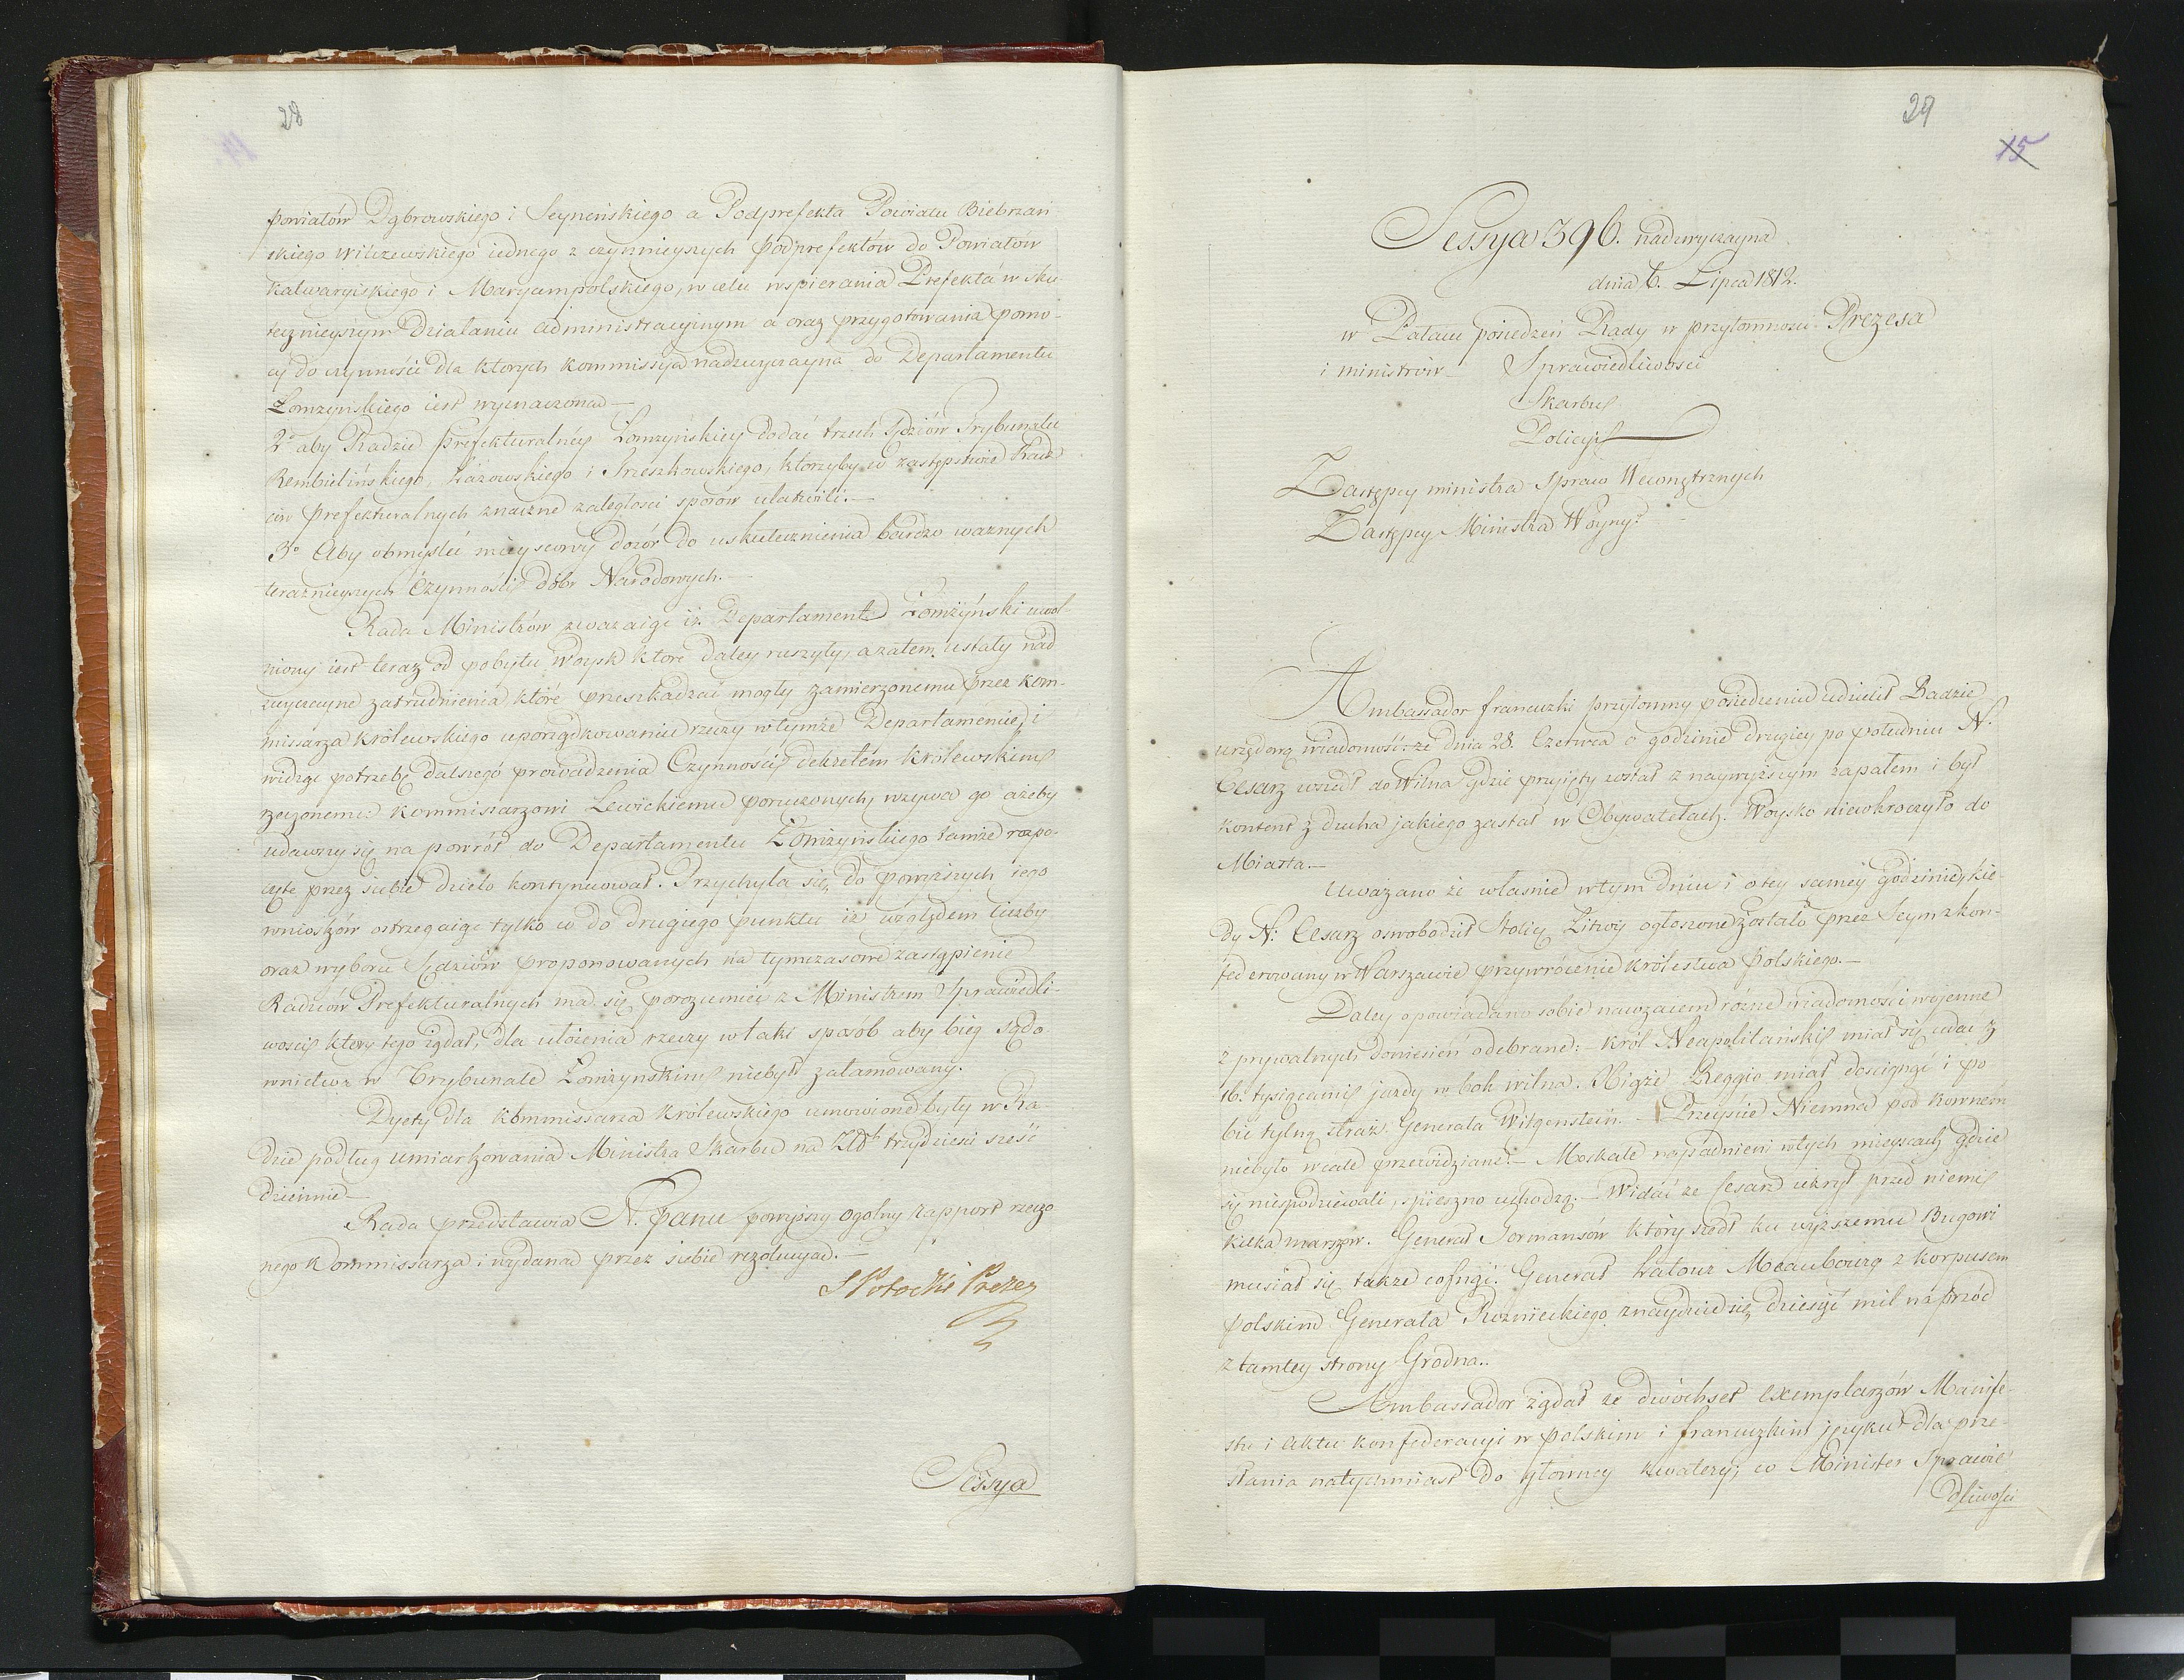 28
powiatów Dąbrowskiego i Seyneńskiego a Podprefekta Powiatu Biebrzań
skiego Wilczewskiego iednego z czynnieyszych podprefektów do Powiatów
Kalwaryiskiego i Maryampolskiego, w celu wspierania Prefekta w sku-
tecznieyszym Działaniu administracyinym a oraz przygotowania pomo-
cy do czynności dla ktorych Kommissya nadzwyczayna do Departamentu
Łomzyńskiego iest wyznaczona—
2º aby Radzie Prefekturalney Łomzyńskiey dodać trzech Sędziów Trybunału
Rembielińskiego, Łazowskiego i Trzeszkowskiego, ktorzyby w zastępstwie Radz
ców prefekturalnych znaczne zaległości sporów ułatwili.—
3º Aby obmyslić mieyscowy dozór do uskutecznienia bardzo ważnych
teraznieyszych Czynności dóbr Narodowych.—
Rada Ministrów zwazaiąc iż Departament Łomżyński uwol-
niony iest teraz od pobytu Woysk ktore daley ruszyły, a zatem ustały nad
zwyczayne zatrudnienia które przeszkadzać mogły zamierzonemu przez Kom-
missarza Królewskiego uporządkowaniu rzeczy w tymże Departamencie, i
widząc potrzebę dalszego prowadzenia Czynności dekretem Królewskim
rzeczonemu Kommissarzowi Lewickiemu poruczonych, wzywa go ażeby
udawszy się na powrót do Departamentu Łomżyńskiego tamże rozpo-
częte przez siebie dzieło kontynuował. Przychyla się do powyższych iego
wniosków ostrzegaiąc tylko co do drugiego punktu iż względem liczby
oraz wyboru Sędziów proponowanych na tymczasowe zastąpienie
Radzców Prefekturalnych ma się porozumieć z Ministrem Sprawiedli-
wości który tego żądał, dla ułożenia rzeczy w taki sposób aby bieg sądo
wnictwa w Trybunale Łomżynskim niebył zatamowany.
Dyety dla Kommissarza Królewskiego umowione były w Ra
dzie podług umiarkowania Ministra Skarbu na Złb trzydzieści sześć
dziennie—
Rada przedstawia N. Panu powyższy ogolny rapport rzeczo
nego Kommissarza i wydana przez siebie rezolucya.—
S Potocki Prezes
Sessya
29
15
Sessya 396. nadzwyczayna
dnia 6. Lipca 1812.
w Pałacu posiedzeń Rady w przytomności Prezesa
i ministrów— Sprawiedliwości
Skarbu
Policyi
Zastępcy ministra Spraw Wewnętrznych
Zastępcy Ministra Woyny
Ambassador francuzki przytomny posiedzeniu udzielił Radzie
urzędową wiadomość: że dnia 28. Czerwca o godzinie drugiey po południu N.
Cesarz wszedł do Wilna gdzie przyięty został z naywyższym zapałem i był
kontent z ducha jakiego zastał w Obywatelach. Woysko niewkroczyło do
Miasta.—
Uważano że własnie w tym dniu i o tey samey godzinie, kie-
dy N: Cesarz oswobodził Stolicę Litwy ogłoszone zostało przez Seym skon-
federowany w Warszawie przywrócenie Królestwa Polskiego.—
Daley opowiadano sobie nawzaiem różne wiadomości woienne
z prywatnych doniesień odebrane:— Król Neapolitański miał się udać z
16. tysiącami jazdy w bok Wilna. Xiąże Reggio miał doscignąć i po-
bić tylną straż Generała Witgenstein.— Przeyście Niemna pod Kownem
niebyło wcale przewidziane.— Moskale napadnieni w tych mieyscach gdzie
się niespodziewali, spieszno uchodzą.— Widać że Cesarz ukrył przed niemi
kilka marszów. Generał Tormansów który szedł ku wyższemu Bugowi
musiał się także cofnąć. Generał Latour Meaubourg z korpusem
polskim Generała Rożnieckiego znayduie się dziesięć mil naprzód
z tamtey strony Grodna..
Ambassador żądał ze dwóchset exemplarzów Manife-
stu i aktu konfederacyi w polskim i francuzkim języku dla prze-
słania natychmiast do głowney kwatery; co Minister Sprawie
dliwości